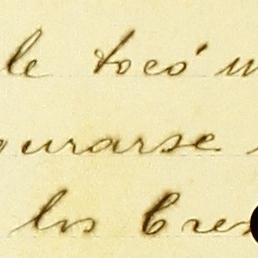 le tocó
gurarse
los Cres